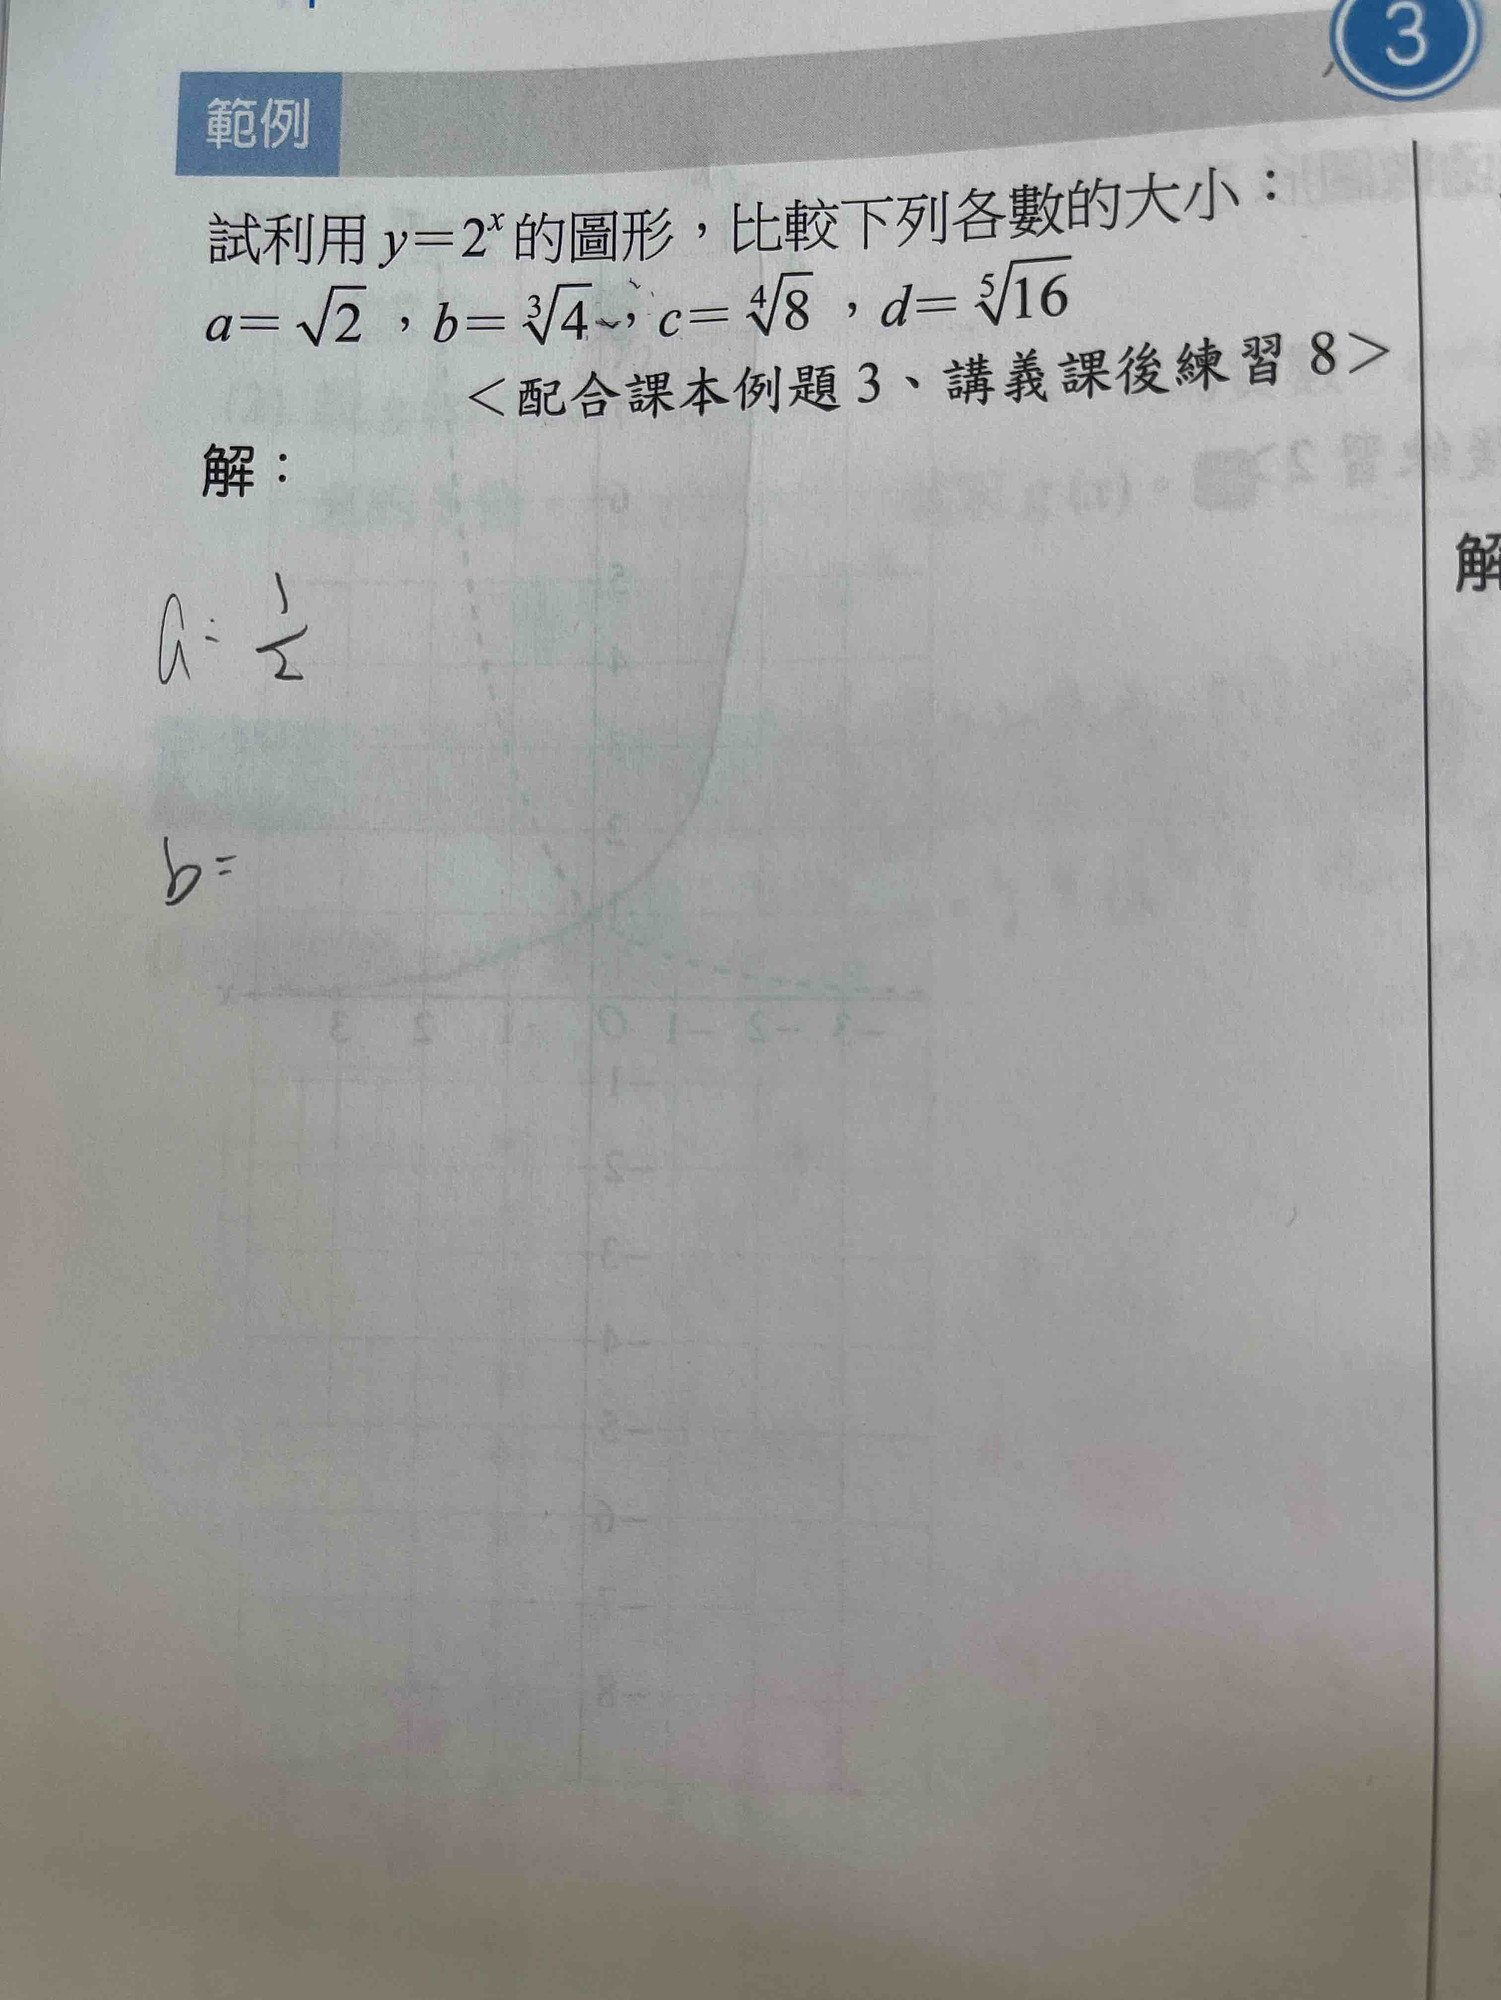 3
範例
試利用 y=2ˣ 的圖形，比較下列各數的大小：
a=√2，b=∛4，c=∜8，d=⁵√16
＜配合課本例題 3、講義課後練習 8＞
解：
解
a= 1/2
b=